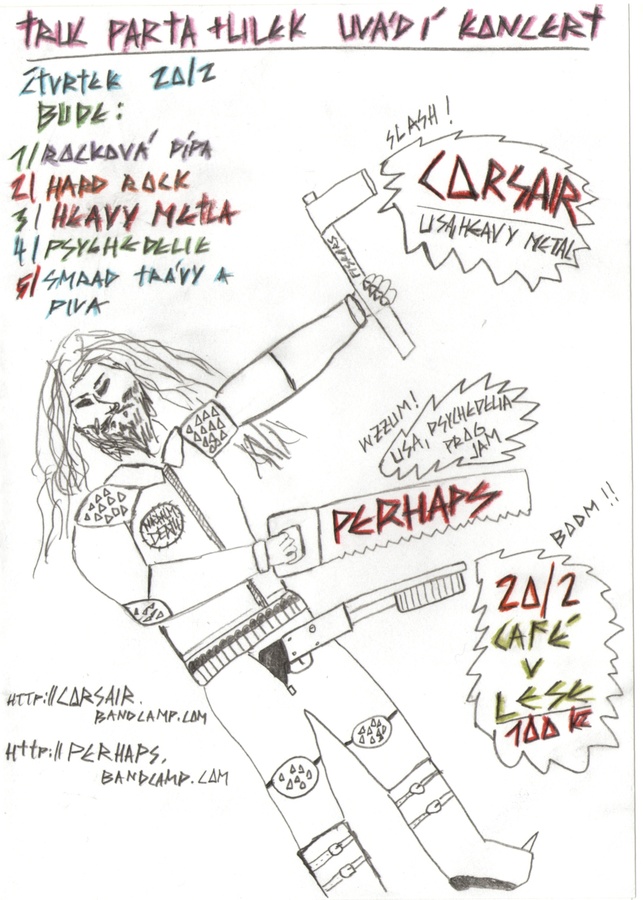 TRUC PARTA + LILEK UVÁDÍ KONCERT
ČTVRTEK 20/2
BUDE:
1/ ROCKOVÁ PÍPA
2/ HARD ROCK
3/ HEAVY METLA
4/ PSYCHEDELIE
5/ SMRAD TRÁVY A
PIVA
SLASH!
CORSAIR
USA, HEAVY METAL
FISKARS
WZZUM!
USA, PSYCHEDELIA
PROG
JAM
PERHAPS
NAPALM
DEATH
BOOM!!
20/2
CAFÉ
V
LESE
100 KČ
HTTP://CORSAIR.
BANDCAMP.COM
HTTP://PERHAPS.
BANDCAMP.COM